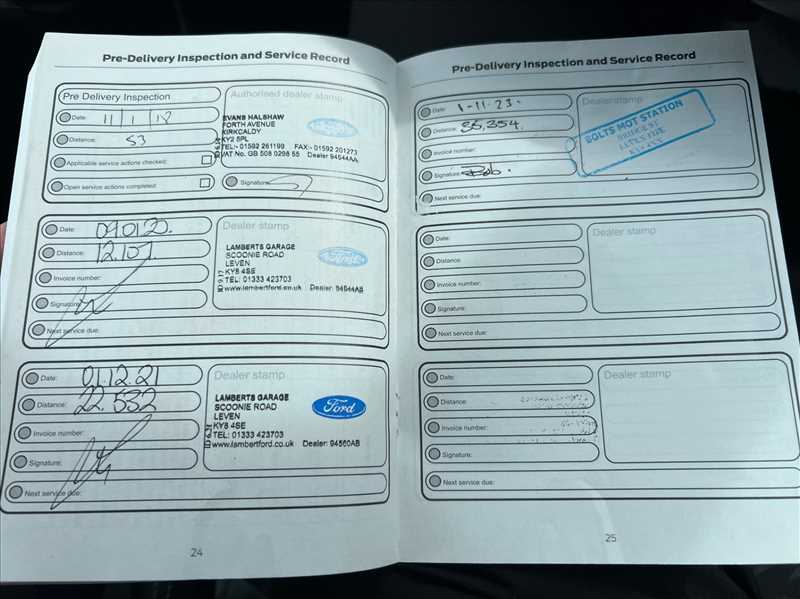 Pre-Delivery Inspection and Service Record
Pre Delivery Inspection
Date: 11 1
Distance: 53
Applicable service actions checked:
Open service actions completed:
Authorised dealer stamp
EVANS HALSHAW
FORTH AVENUE
KIRKCALDY
KY2 5PL
TEL:- 01592 261199 FAX:- 01592 201273
VAT No. GB 508 0298 55 Dealer 94644AA
Signature:
Date: 090120.
Distance: 12.107
Invoice number:
Signature:
Next service due:
Dealer stamp
LAMBERTS GARAGE
SCOONIE ROAD
LEVEN
KY8 4SE
TEL: 01333 423703
www.lambertford.co.uk Dealer: 94644AB
Ford
Date: 01.12.21
Distance: 22.532
Invoice number:
Signature:
Next service due:
Dealer stamp
LAMBERTS GARAGE
SCOONIE ROAD
LEVEN
KY8 4SE
TEL: 01333 423703
www.lambertford.co.uk Dealer: 94560AB
Ford
24
Pre-Delivery Inspection and Service Record
Date: 1-11-23.
Distance: 35,354.
Invoice number:
Signature: Rob.
Next service due:
Dealer stamp
BOLTS MOT STATION
BRIDGE ST
Date:
Distance:
Invoice number:
Signature:
Next service due:
Dealer stamp
Date:
Distance:
Invoice number:
Signature:
Next service due:
Dealer stamp
25